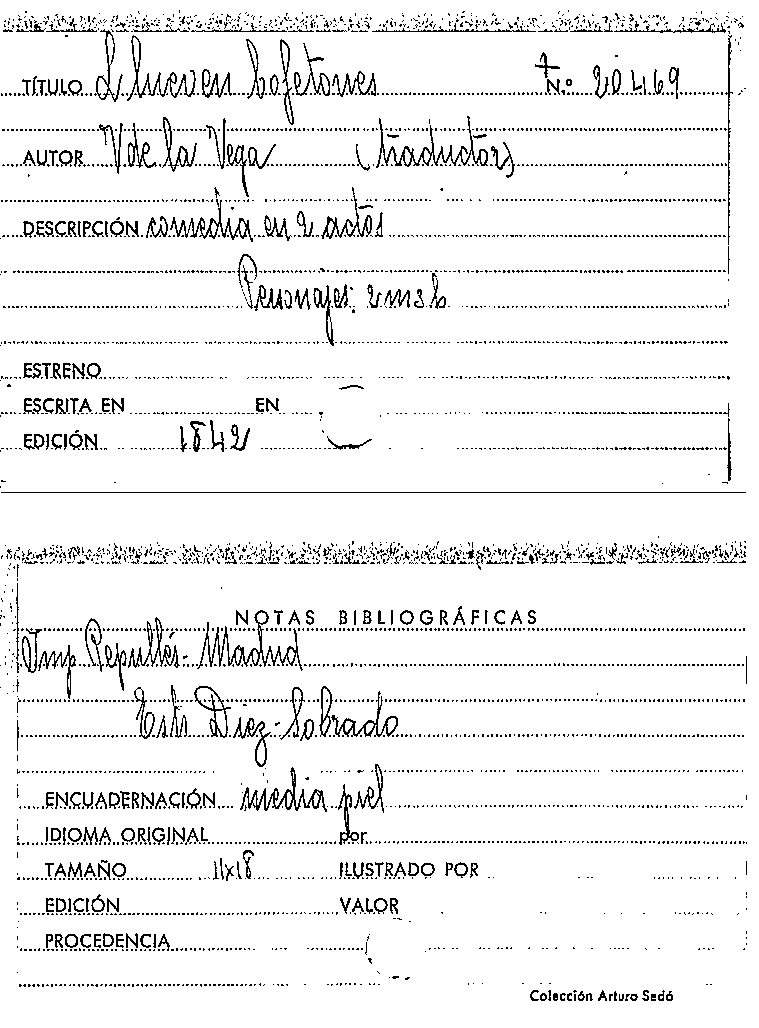 TÍTULO Llueven bofetones N.º 20469
AUTOR V de la Vega (traductor)
DESCRIPCIÓN comedia en 2 actos
Personajes: 2m3h
ESTRENO
ESCRITA EN EN
EDICIÓN 1842
NOTAS BIBLIOGRÁFICAS
Imp Repullés - Madrid
Diez-Sobrado
ENCUADERNACIÓN media piel
IDIOMA ORIGINAL por
TAMAÑO 11x18 ILUSTRADO POR
EDICIÓN VALOR
PROCEDENCIA
Colección Arturo Sedó